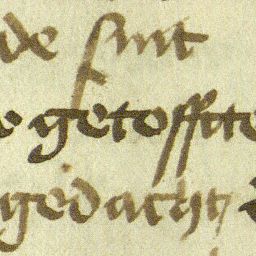 de sint
e getoffte
gedacht